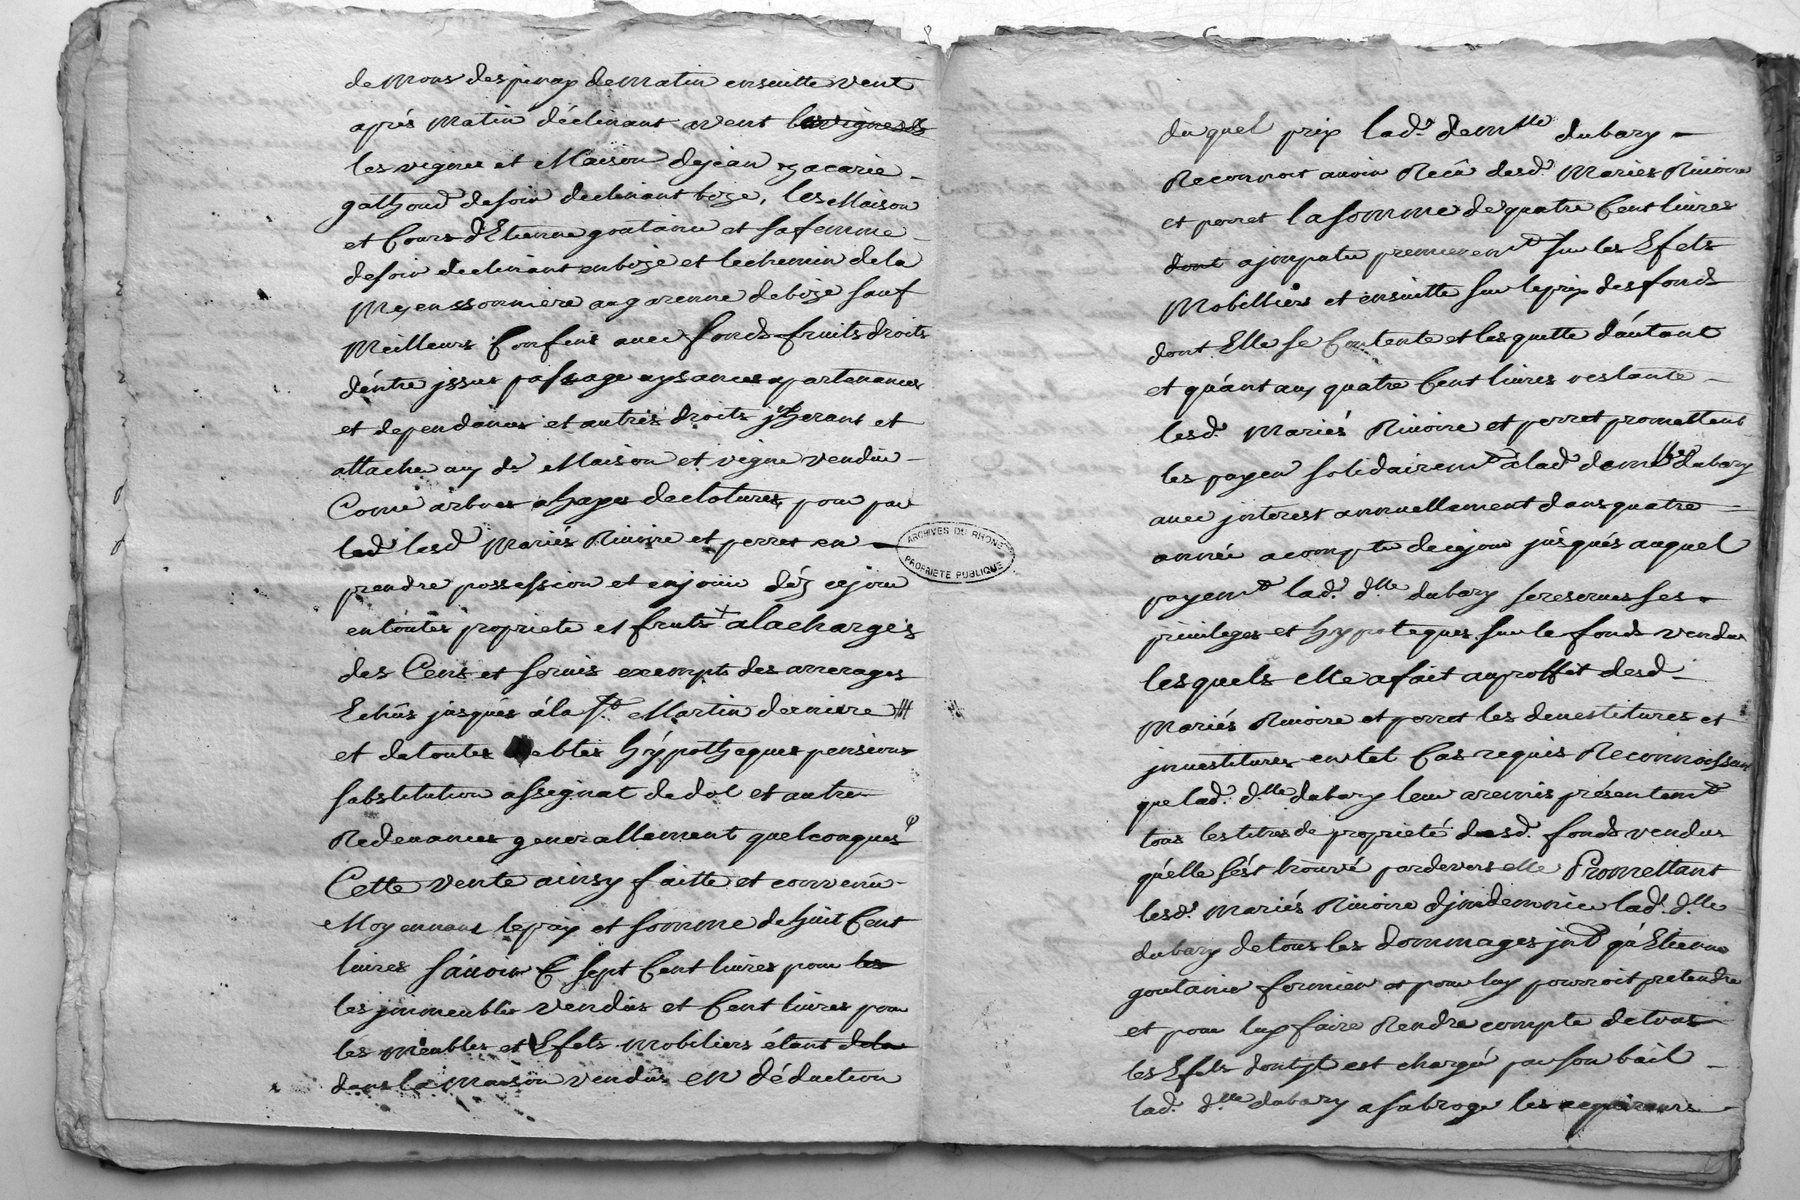 de mons despinay de matin ensuitte vent
aprés matin déclinant avent les vignes
les vignes et Maison de jean zacarie
gathoud de soir declinant bize, les Maison
et Cours d'Etienne goutanie et sa femme
de soir declinant en bize et le chemin de la
augarenne de bize sauf
Meilleurs Confins avec fonds fruits droits
d'éntre jssue passage aysances apartenances
et dependances et autres droits jnherant et
attaches aux de Maison et vigne vendue
Come arbres et hayes de clotures, pour par
lad lesd Mariés Riuoire et perret en
prendre possession et en jouir déz ce jour
en toutes propriete et fruits + a la charges
des Cens et seruis exempts des arrerages
Echûs jusqués á la St Martin derniere ///
et de toutes debtes hÿpotheques pensions
substitution assignat de dot et autre
Redevances generallement quelconques
Cette vente ainsy faitte et convenû
Moyennant le prix et somme de huit Cent
liures sáuoir sept Cent liures pour les
les jmmeubles vendus et Cent liures pour
les meubles et Efets mobiliers étant de la
dans la maison vendue en déduction
du quel prix lad. demlle dubary
Reconnoit auoir Recû desd. Mariés Riuoire
et perret la somme de quatre Cent liures
dont a jmputer premierement sur les Efets
Mobilliers et ensuitte sur le prix des fonds
dont Elle se Contente et les quitte d'áutant
et quánt aux quatre Cent liures restante
lesd. Mariés Riuoire et perret promettent
les payer solidairemt á lad demlle dubary
auec jnterest annuellement dans quatre
année a compter de ce jour jusqués au quel
payemt lad. dlle dubary se reserve ses
priuileges et hypoteques sur le fonds vendus
les quels elle a fait au proffit desd
Mariés Riuoire et perret les deuestitures et
jnuestitures en tel Cas requis Reconnoissant
que lad. dlle dubary leur a remis présentemt
tous les titres de proprieté desd. fonds vendus
qu'elle s'ést trouvé pardevers elle Promettant
lesd. Mariés Riuoire d'jndemnier lad. dlle
dubary de tous les dommages jnt qu'Etienne
goutanie fermier et pour luy pourroit pretendre
et pour luy faire Rendre compte de tous
les Efets dont jl est chargé par son bail
lad. dlle dubary a subrogé les acquereurs
ARCHIVES DU RHONE
PROPRIETE PUBLIQUE